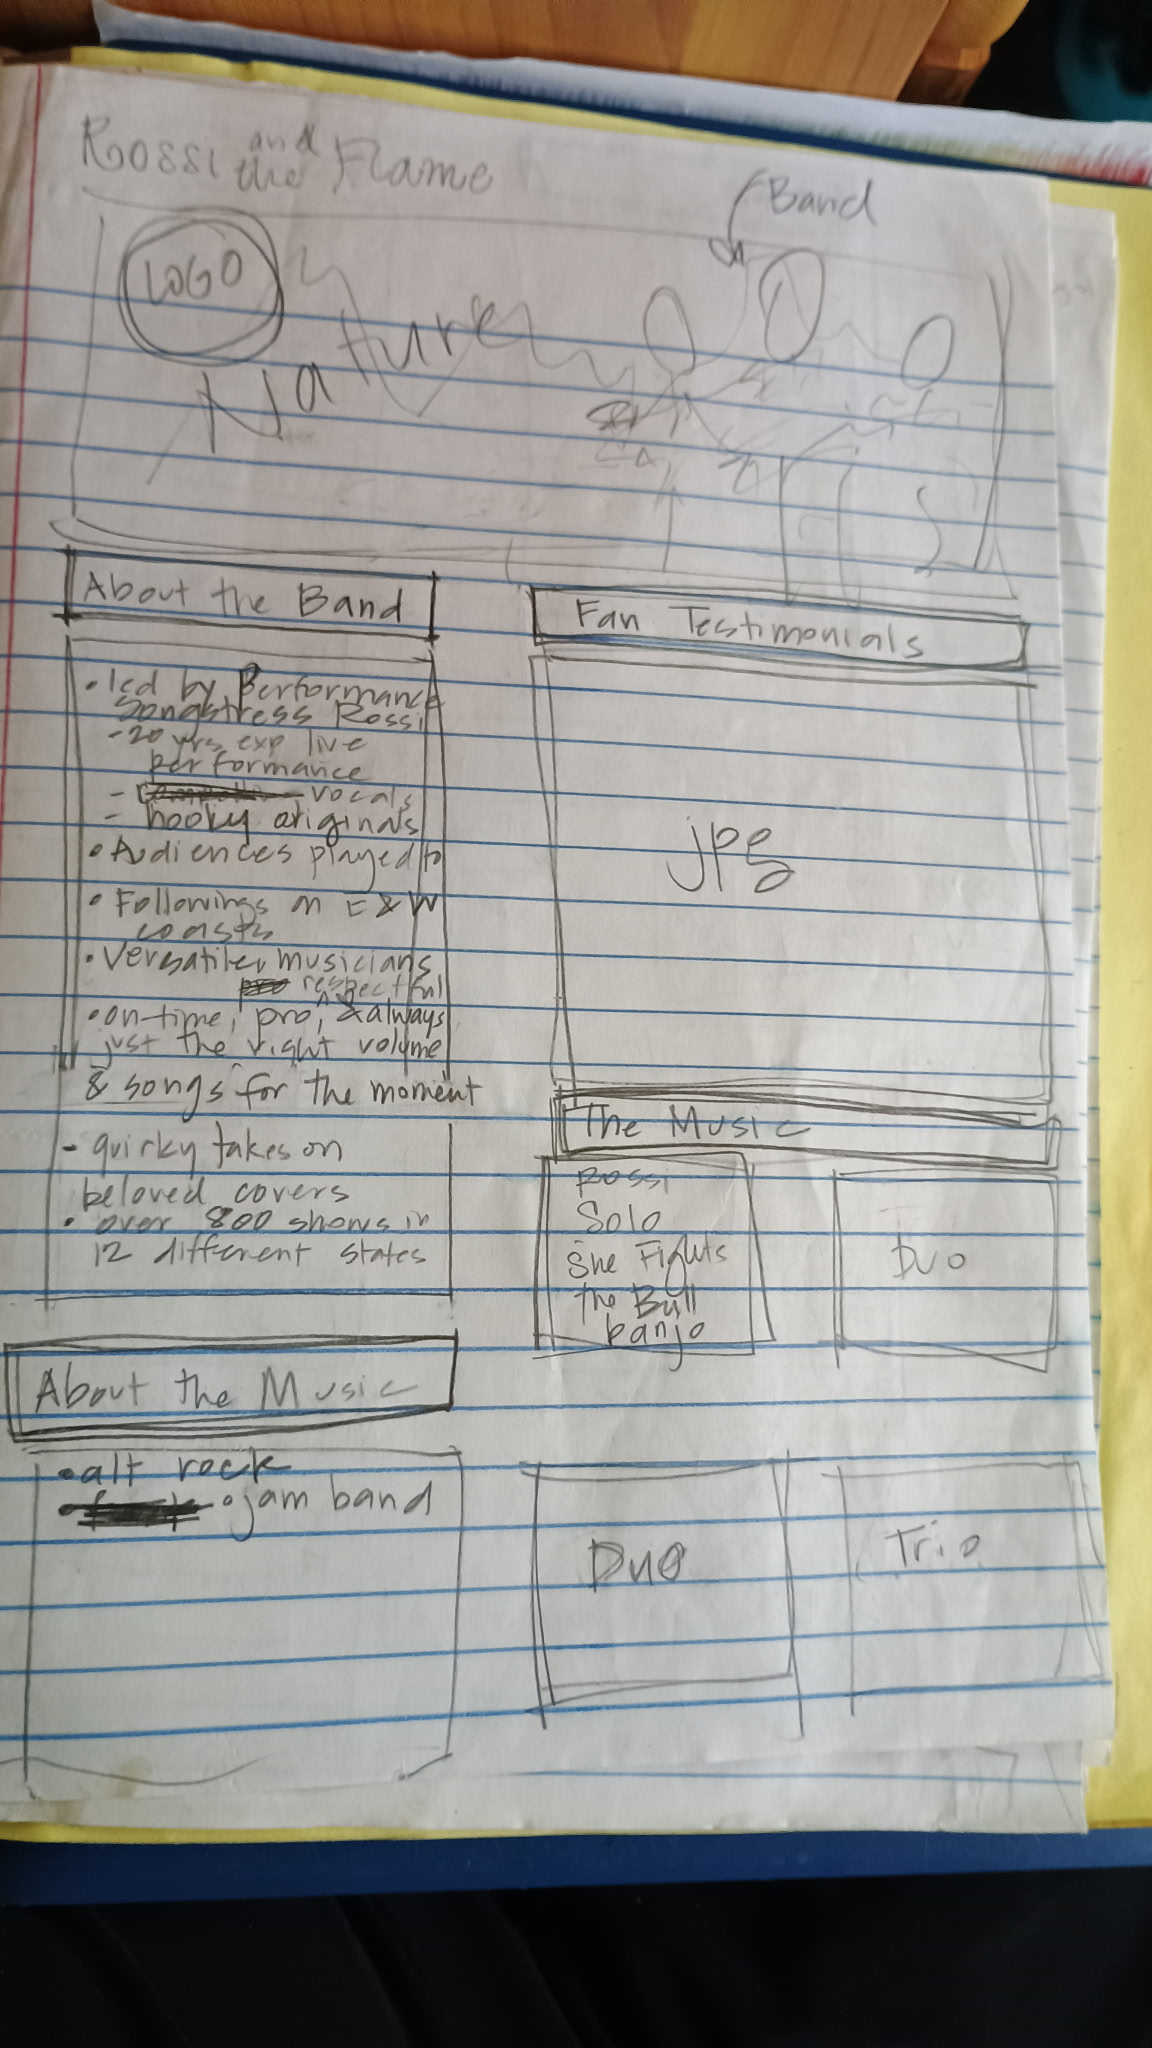 Rossi and the Flame
Band
LOGO
Nature
About the Band
• led by Performance
Songstress Rossi
- 20 yrs exp live
performance
- vocals
- hooky originals
• Audiences played to
• Followings on E & W
coasts
• Versatile musicians
respectful
• on-time, pro, & always
just the right volume
& songs for the moment
- quirky takes on
beloved covers
• over 800 shows in
12 different states
About the Music
• alt rock
• jam band
Fan Testimonials
jpg
The Music
Rossi
Solo
She Fights
the Bull
banjo
Duo
Duo
Trio